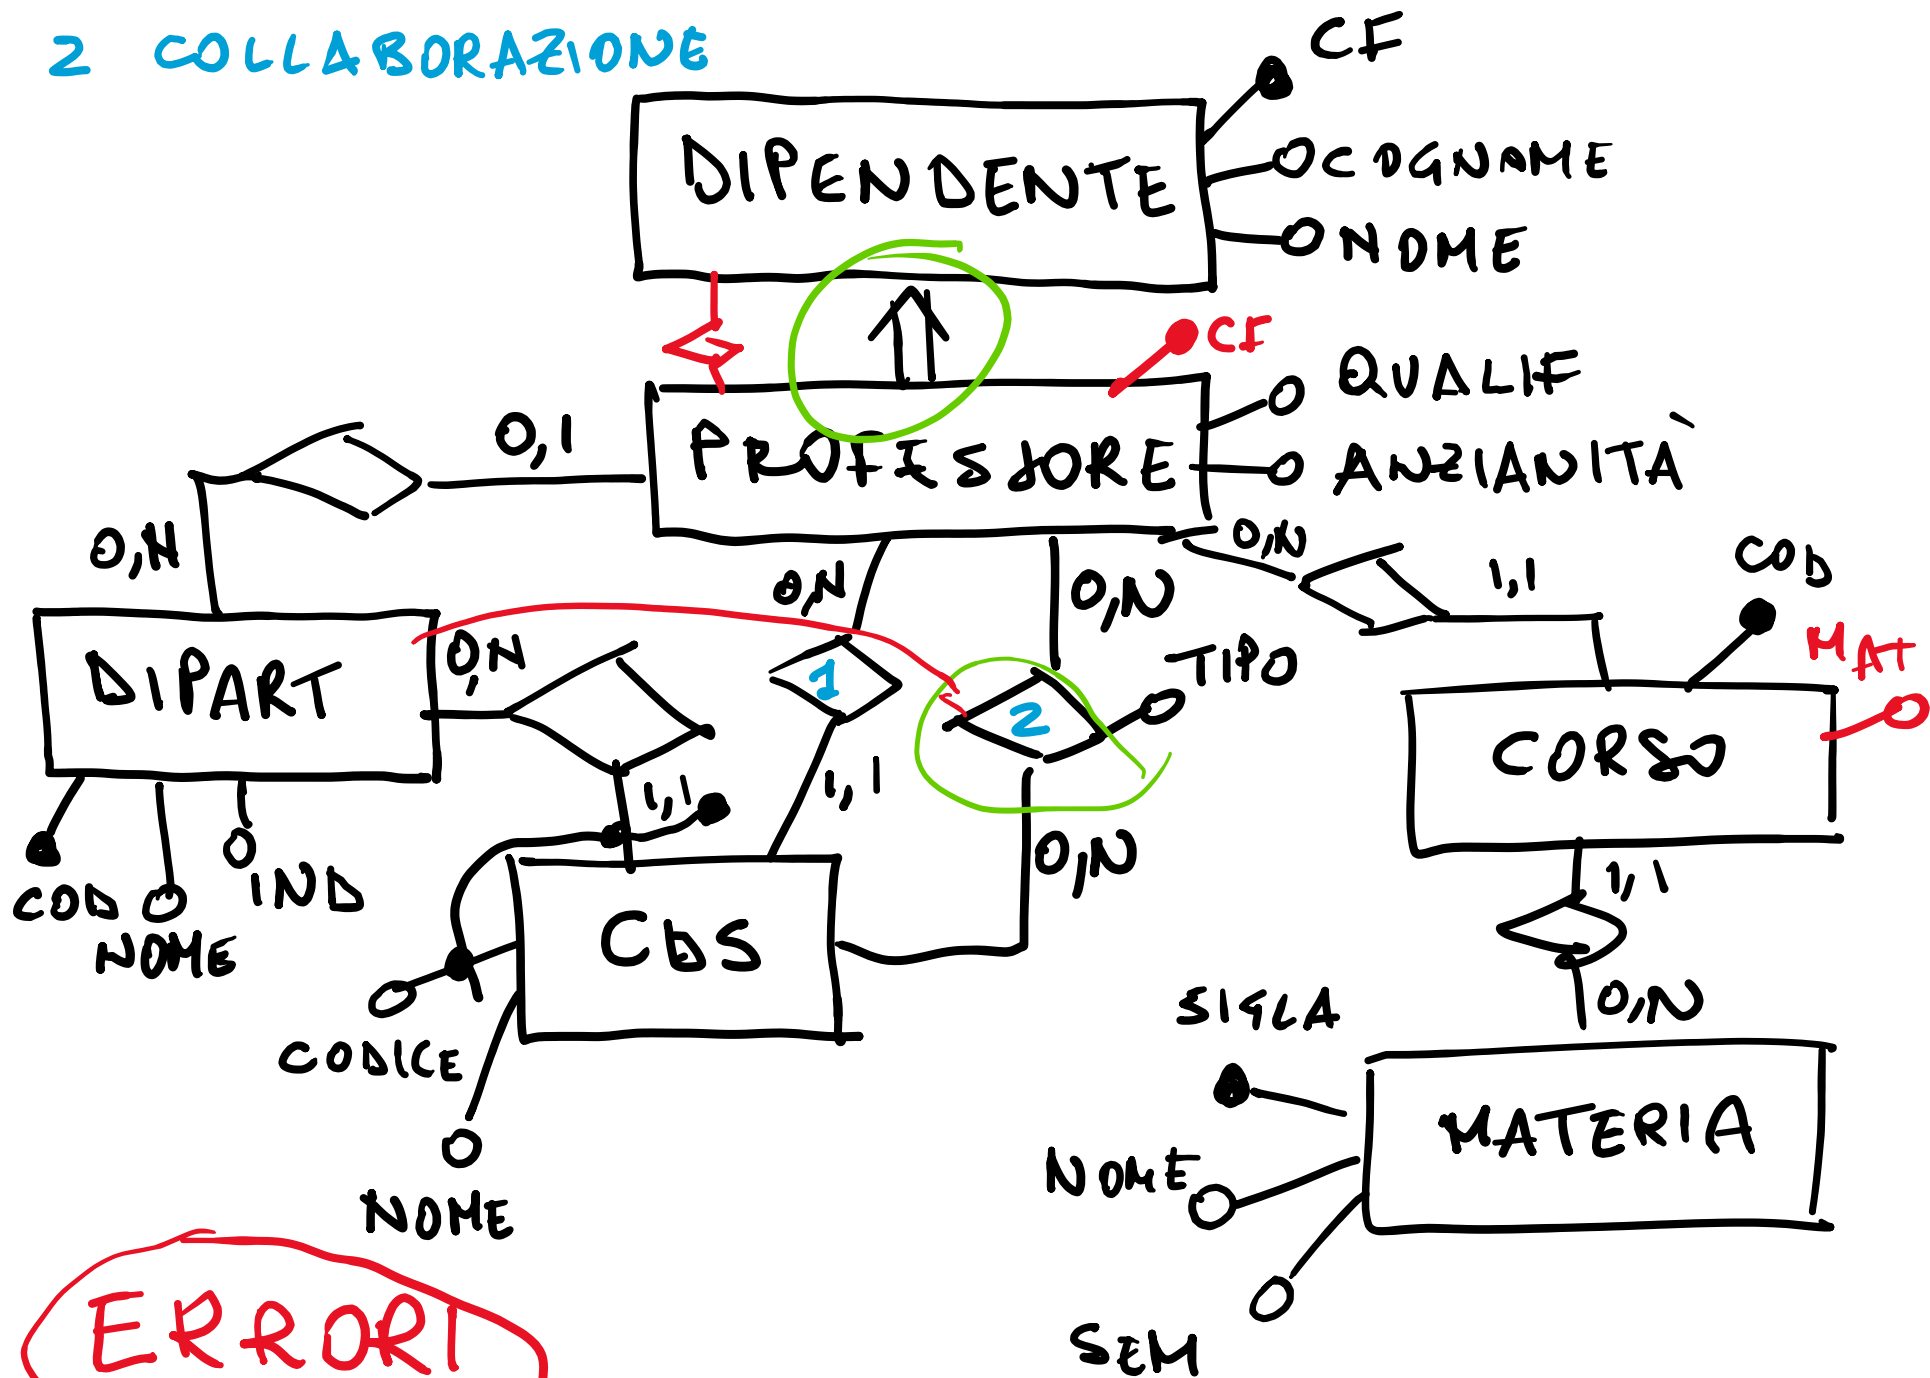 2 COLLABORAZIONE
CF
DIPENDENTE
COGNAME
NOME
CF
QUALIF
PROFESSORE
ANZIANITÀ
0,1
0,N
0,N
0,N
0,N
1,1
COD
MAT
DIPART
0,N
1
2
TIPO
CORSO
1,1
1,1
0,N
COD
NOME
IND
CDS
1,1
CODICE
NOME
0,N
SIGLA
MATERIA
NOME
SEM
ERRORI